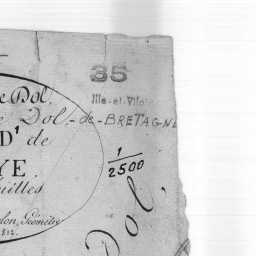 35
Ille-et-Vilaine
e Dol.
Dol-de-BRETAGNE
D^t de
1/2500
YE.
uilles
Dol.
lon, Géomètre
1812.